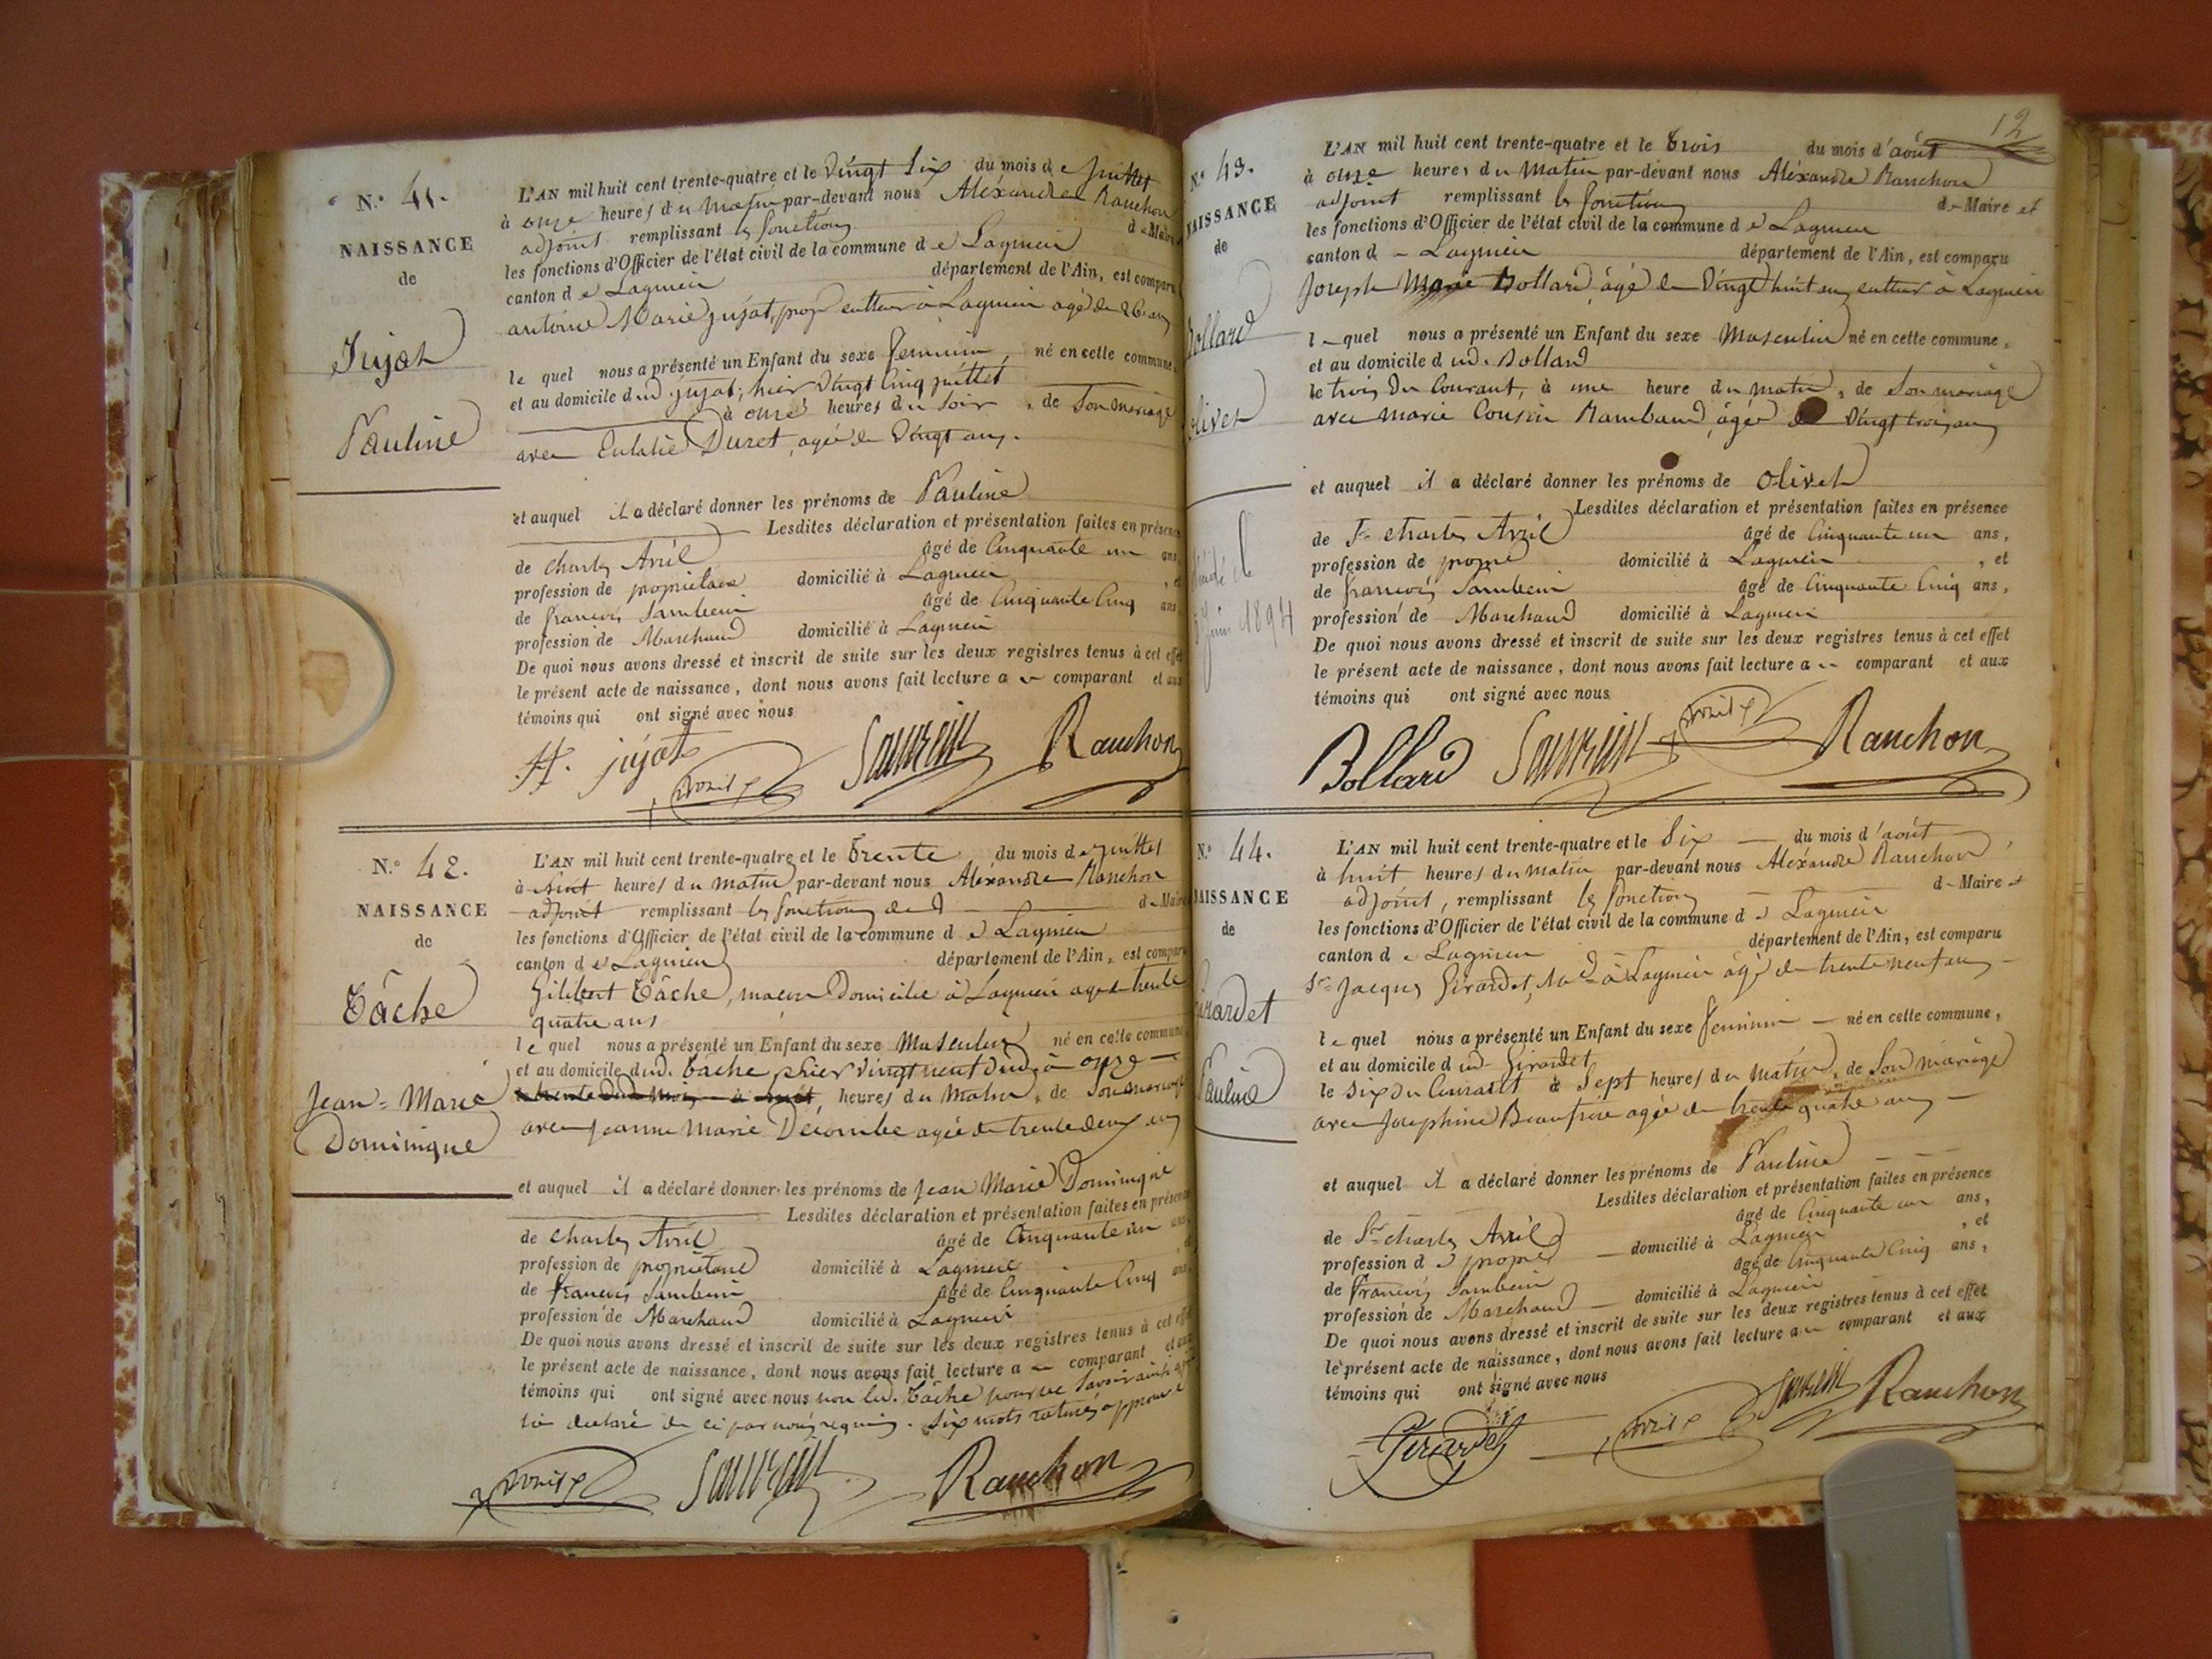 N.° 41.
NAISSANCE
de
Jujat
Pauline
L'AN mil huit cent trente-quatre et le Vingt Six du mois de Juillet
à onze heures du Matin par-devant nous Aléxandre Ranchon
adjoint remplissant les fonctions de Maire et
les fonctions d'Officier de l'état civil de la commune de Lagnieu
canton de Lagnieu département de l'Ain, est comparu
antoine Marie jujat, prop.re cultteur à Lagnieu agé de 26 ans
le quel nous a présenté un Enfant du sexe feminin, né en cette commune,
et au domicile dud jujat, hier Vingt Cinq juillet
à onze heures du Soir, de Son mariage
avec Eulalie Duret, agée de Vingt ans.
et auquel il a déclaré donner les prénoms de Pauline
Lesdites déclaration et présentation faites en présence
de Charles Avril âgé de Cinquante un ans,
profession de propriétaire domicilié à Lagnieu, et
de françois Sambein âgé de Cinquante Cinq ans,
profession de Marchand domicilié à Lagnieu
De quoi nous avons dressé et inscrit de suite sur les deux registres tenus à cet effet
le présent acte de naissance, dont nous avons fait lecture au comparant et aux
témoins qui ont signé avec nous
jujat Avril Ranchon
N.° 42.
NAISSANCE
de
Tâche
Jean-Marie
Dominique
L'AN mil huit cent trente-quatre et le trente du mois de juillet
à huit heures du matin par-devant nous Aléxandre Ranchon
adjoint remplissant les fonctions de Maire
les fonctions d'Officier de l'état civil de la commune de Lagnieu
canton de Lagnieu département de l'Ain, est comparu
Gilibert Tâche, macon Domicilié à Lagnieu agé de trente
quatre ans
le quel nous a présenté un Enfant du sexe Masculin né en cette commune
et au domicile dud. Tâche hier Vingt neuf dud. à onze
heures du Matin, de Son mariage
avec Jeanne Marie Decombe agée de trente deux ans
et auquel il a déclaré donner les prénoms de Jean Marie Dominique
Lesdites déclaration et présentation faites en présence
de Charles Avril âgé de Cinquante un ans
profession de propriétaire domicilié à Lagnieu
de françois Sambein âgé de Cinquante Cinq ans
profession de Marchand domicilié à Lagnieu
De quoi nous avons dressé et inscrit de suite sur les deux registres tenus à cet effet
le présent acte de naissance, dont nous avons fait lecture au comparant et aux
témoins qui ont signé avec nous non led. Tâche pour ne Savoir ainsi
declaré de ce par nous requis. Six mots raturés approuvé
Avril Ranchon
12
N.° 43.
NAISSANCE
de
Bollard
Olivet
1894
L'AN mil huit cent trente-quatre et le trois du mois d'août
à onze heures du Matin par-devant nous Aléxandre Ranchon
adjoint remplissant les fonctions de Maire et
les fonctions d'Officier de l'état civil de la commune de Lagnieu
canton de Lagnieu département de l'Ain, est comparu
Joseph Marie Bollard, âgé de Vingt huit ans cultteur à Lagnieu
lequel nous a présenté un Enfant du sexe Masculin né en cette commune,
et au domicile dud. Bollard
le trois du Courant, à une heure du matin, de Son mariage
avec Marie Cousin Rambaud, âgée de Vingt trois ans
et auquel il a déclaré donner les prénoms de Olivet
Lesdites déclaration et présentation faites en présence
de Sr Charles Avril âgé de Cinquante un ans,
profession de propre domicilié à Lagnieu, et
de françois Sambein âgé de Cinquante Cinq ans,
profession de Marchand domicilié à Lagnieu
De quoi nous avons dressé et inscrit de suite sur les deux registres tenus à cet effet
le présent acte de naissance, dont nous avons fait lecture au comparant et aux
témoins qui ont signé avec nous
Bollard Avril Ranchon
N.° 44.
NAISSANCE
de
Girardet
Pauline
L'AN mil huit cent trente-quatre et le Six du mois d'août
à huit heures du matin par-devant nous Aléxandre Ranchon
adjoint, remplissant les fonctions de Maire et
les fonctions d'Officier de l'état civil de la commune de Lagnieu
canton de Lagnieu département de l'Ain, est comparu
Sr Jacques Girardet, Md à Lagnieu âgé de trente neuf ans
lequel nous a présenté un Enfant du sexe feminin né en cette commune,
et au domicile dud Girardet
le Six du Courant à Sept heures du Matin, de Son mariage
avec Josephine Beaufrere agée de trente quatre ans
et auquel il a déclaré donner les prénoms de Pauline
Lesdites déclaration et présentation faites en présence
de Sr Charles Avril âgé de Cinquante un ans,
profession de propre domicilié à Lagnieu, et
de François Sambein âgé de Cinquante Cinq ans,
profession de Marchand domicilié à Lagnieu
De quoi nous avons dressé et inscrit de suite sur les deux registres tenus à cet effet
le présent acte de naissance, dont nous avons fait lecture au comparant et aux
témoins qui ont signé avec nous
Girardet Avril Ranchon